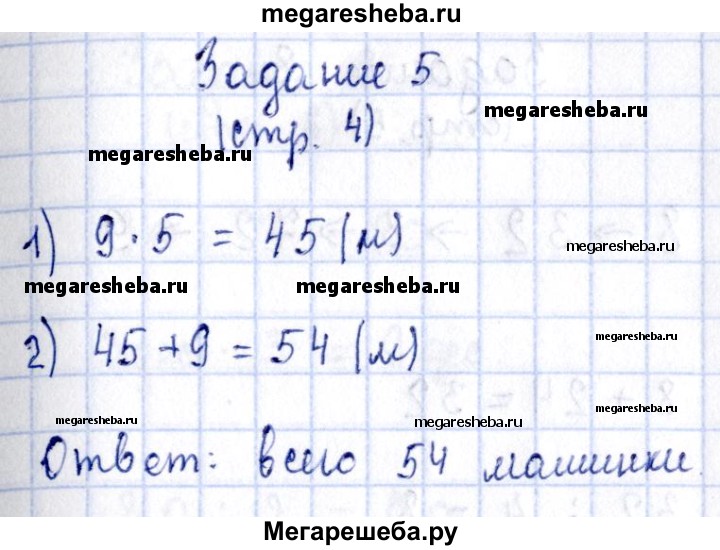 megaresheba.ru
Задание 5
megaresheba.ru
(стр. 4)
megaresheba.ru
1) 9 · 5 = 45 (м)
megaresheba.ru
megaresheba.ru
megaresheba.ru
2) 45 + 9 = 54 (м)
megaresheba.ru
megaresheba.ru
megaresheba.ru
megaresheba.ru
Ответ: всего 54 машинки.
Мегарешеба.ру